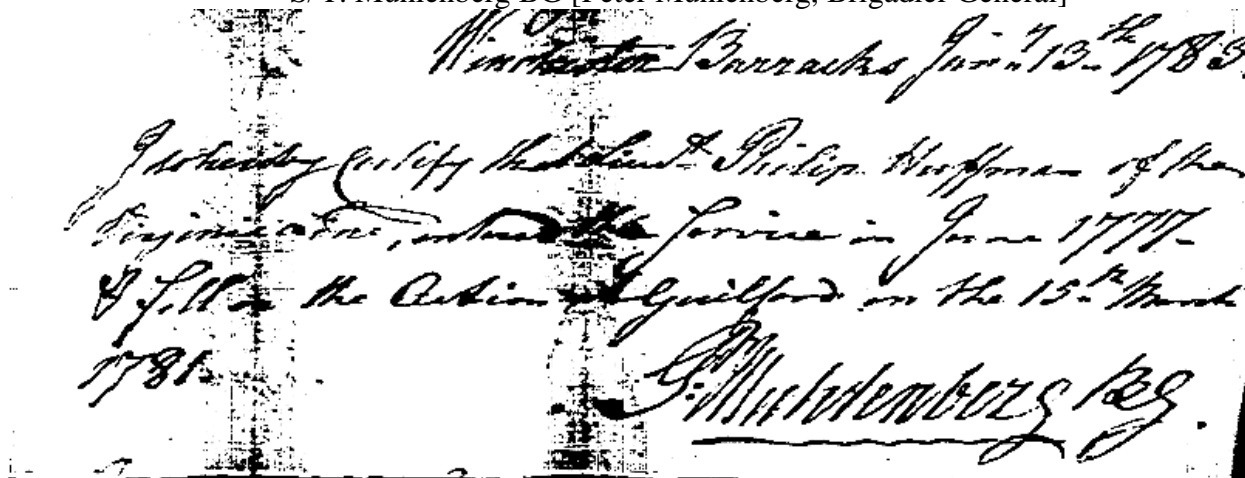 S/ P. Muhlenberg BG [Peter Muhlenberg, Brigadier General]
Winchester Barracks Jany 13th 1783.
I do hereby Certify that Lieut Philip Huffman of the
Virginia Line, entered the Service in June 1777
& fell in the Action at Guilford on the 15th March
1781.
P. Muhlenberg BG.